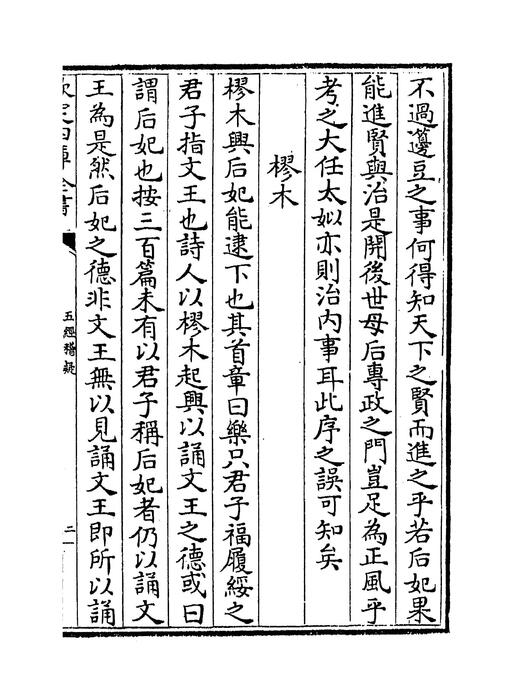 不過籩豆之事何得知天下之賢而進之乎若后妃果
能進賢與治是開後世母后專政之門豈足為正風乎
考之大任太姒亦則治内事耳此序之誤可知矣
樛木
樛木興后妃能逮下也其首章曰樂只君子福履綏之
君子指文王也詩人以樛木起興以誦文王之德或曰
謂后妃也按三百篇未有以君子稱后妃者仍以誦文
王為是然后妃之德非文王無以見誦文王即所以誦
欽定四庫全書
五經稽疑
二